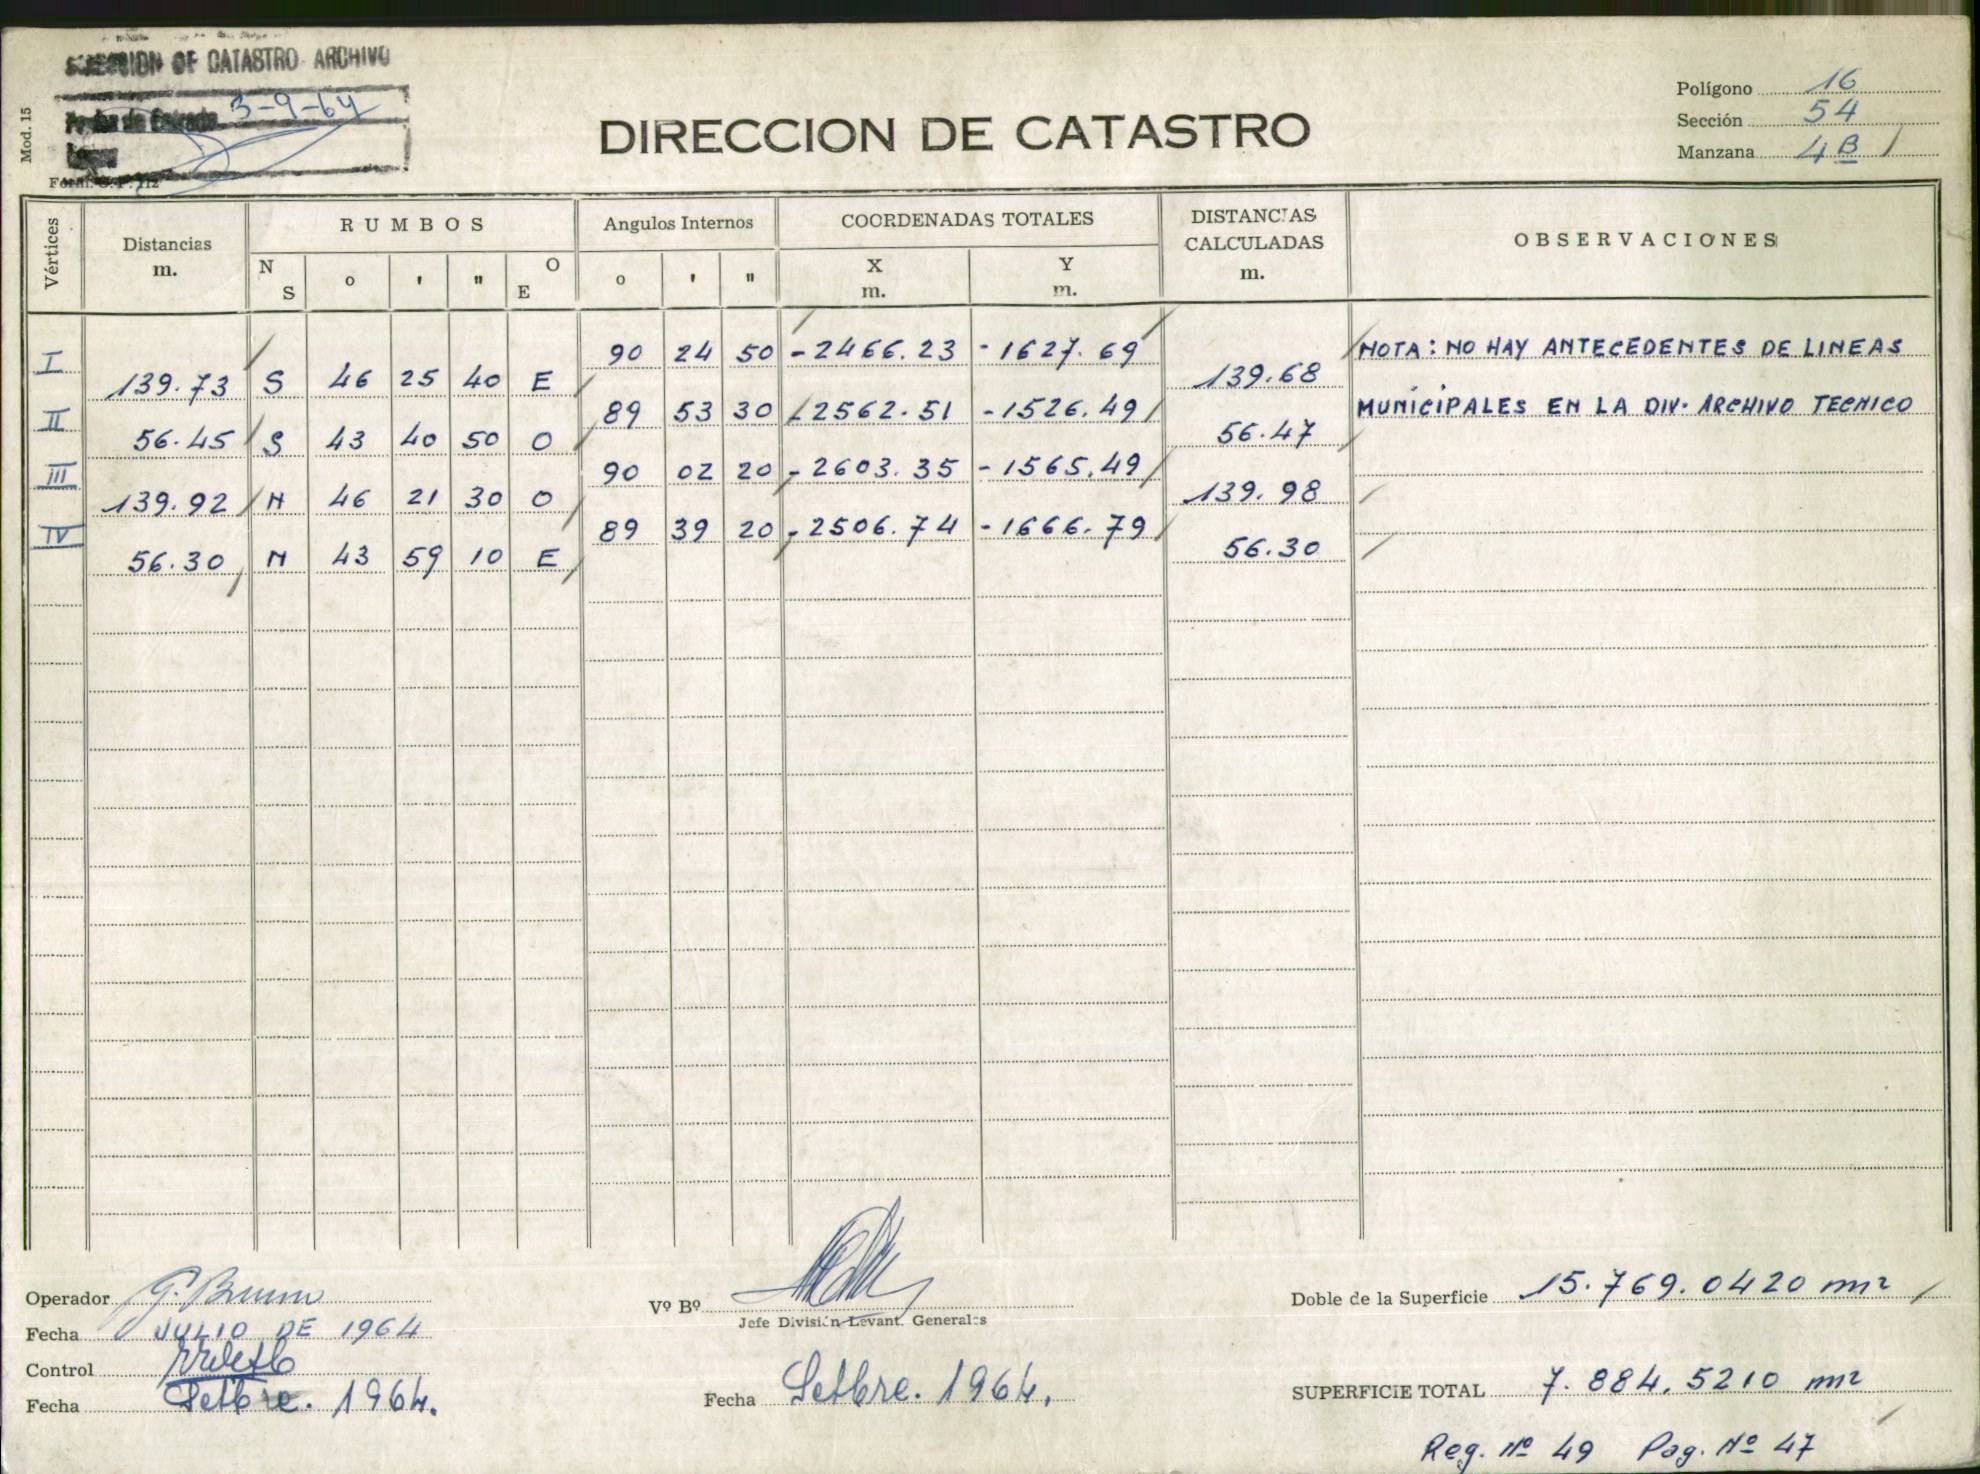 DIRECCION DE CATASTRO ARCHIVO
Fecha de Entrada 3-9-64
Mod. 15
DIRECCION DE CATASTRO
Polígono 16
Sección 54
Manzana 4B
Vértices
Distancias m.
RUMBOS
N S o ' " O E
Angulos Internos
o ' "
COORDENADAS TOTALES
X m. Y m.
DISTANCIAS CALCULADAS m.
OBSERVACIONES
I 90 24 50 -2466.23 -1627.69 NOTA: NO HAY ANTECEDENTES DE LINEAS
139.73 S 46 25 40 E 139.68
II 89 53 30 -2562.51 -1526.49 MUNICIPALES EN LA DIV. ARCHIVO TECNICO
56.45 S 43 40 50 O 56.47
III 90 02 20 -2603.35 -1565.49
139.92 N 46 21 30 O 139.98
IV 89 39 20 -2506.74 -1666.79
56.30 N 43 59 10 E 56.30
Operador G. Bruno
Fecha JULIO DE 1964
Control
Fecha Setbre. 1964.
Vº Bº
Jefe División Levant. Generales
Fecha Setbre. 1964.
Doble de la Superficie 15.769.0420 m²
SUPERFICIE TOTAL 7.884,5210 m²
Reg. Nº 49 Pag. Nº 47